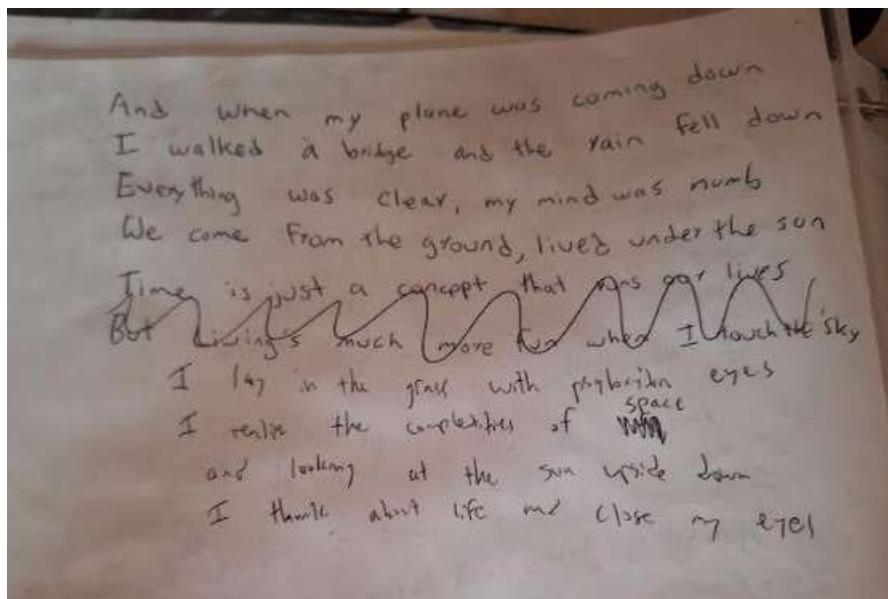 And when my plane was coming down
I walked a bridge and the rain fell down
Everything was clear, my mind was numb
We come from the ground, lived under the sun
Time is just a concept that runs our lives
But Living's much more fun when I touch the sky
I lay in the grass with eyes
I realize the complexities of space
and looking at the sun upside down
I think about life and close my eyes